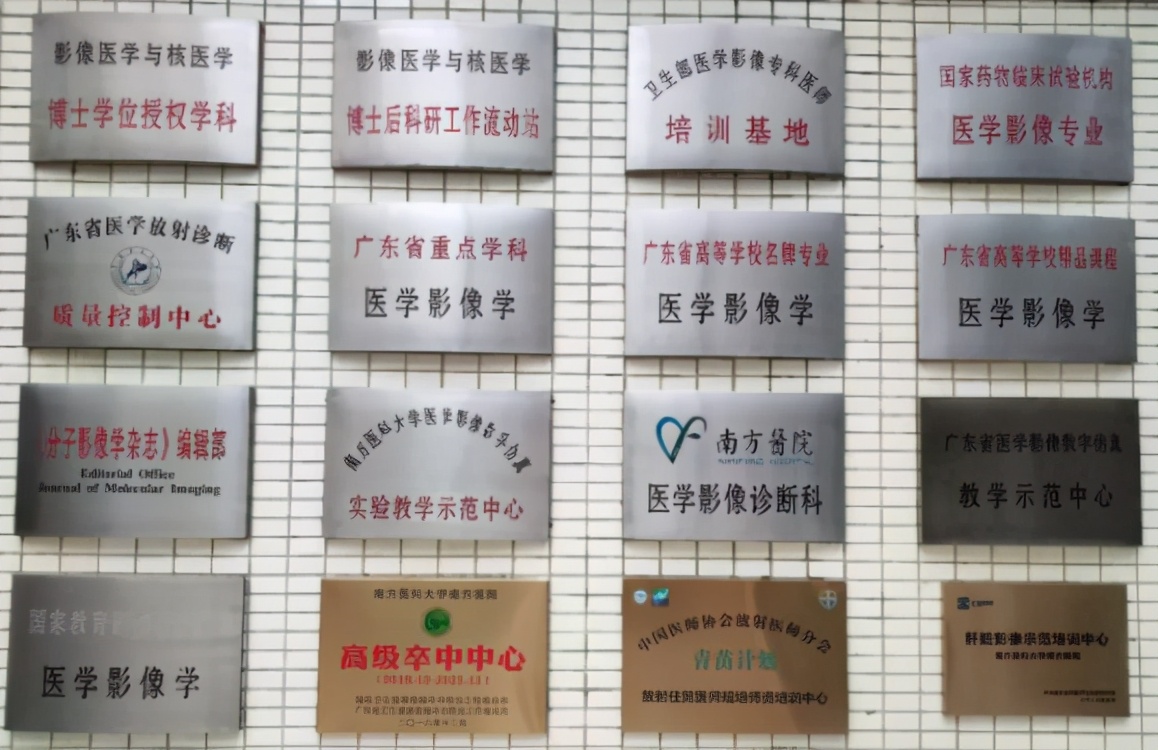 影像医学与核医学
博士学位授权学科
影像医学与核医学
博士后科研工作流动站
卫生部医学影像专科医师
培训基地
国家药物临床试验机构
医学影像专业
广东省医学放射诊断
质量控制中心
广东省重点学科
医学影像学
广东省高等学校名牌专业
医学影像学
广东省高等学校精品课程
医学影像学
《分子影像学杂志》编辑部
Editorial Office
Journal of Molecular Imaging
南方医科大学医学影像数字仿真
实验教学示范中心
南方醫院
医学影像诊断科
广东省医学影像数字仿真
教学示范中心
国家教育部
医学影像学
高级卒中中心
中国医师协会放射医师分会
青苗计划